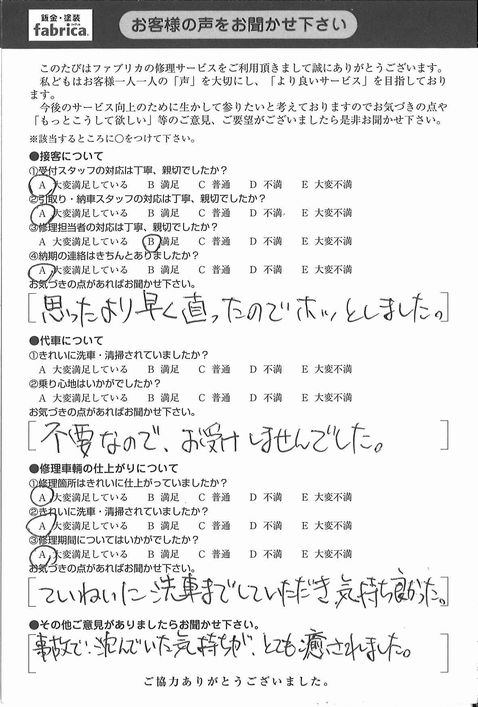 鈑金・塗装
fabrica.
お客様の声をお聞かせ下さい
このたびはファブリカの修理サービスをご利用頂きまして誠にありがとうございます。
私どもはお客様一人一人の「声」を大切にし、「より良いサービス」を目指しており
ます。
今後のサービス向上のために生かして参りたいと考えておりますのでお気づきの点や
「もっとこうして欲しい」等のご意見、ご要望がございましたら是非お聞かせ下さい。
※該当するところに○をつけて下さい。
●接客について
①受付スタッフの対応は丁寧、親切でしたか?
A 大変満足している B 満足 C 普通 D 不満 E 大変不満
②引取り・納車スタッフの対応は丁寧、親切でしたか?
A 大変満足している B 満足 C 普通 D 不満 E 大変不満
③修理担当者の対応は丁寧、親切でしたか?
A 大変満足している B 満足 C 普通 D 不満 E 大変不満
④納期の連絡はきちんとありましたか?
A 大変満足している B 満足 C 普通 D 不満 E 大変不満
お気づきの点があればお聞かせ下さい。
思ったより早く直ったのでホッとしました。
●代車について
①きれいに洗車・清掃されていましたか?
A 大変満足している B 満足 C 普通 D 不満 E 大変不満
②乗り心地はいかがでしたか?
A 大変満足している B 満足 C 普通 D 不満 E 大変不満
お気づきの点があればお聞かせ下さい。
不要なので、お受けしませんでした。
●修理車輌の仕上がりについて
①修理箇所はきれいに仕上がっていましたか?
A 大変満足している B 満足 C 普通 D 不満 E 大変不満
②きれいに洗車・清掃されていましたか?
A 大変満足している B 満足 C 普通 D 不満 E 大変不満
③修理期間についてはいかがでしたか?
A 大変満足している B 満足 C 普通 D 不満 E 大変不満
お気づきの点があればお聞かせ下さい。
ていねいに洗車までしていただき気持ち良かった。
●その他ご意見がありましたらお聞かせ下さい。
事故で沈んでいた気持ちが、とても癒されました。
ご協力ありがとうございました。